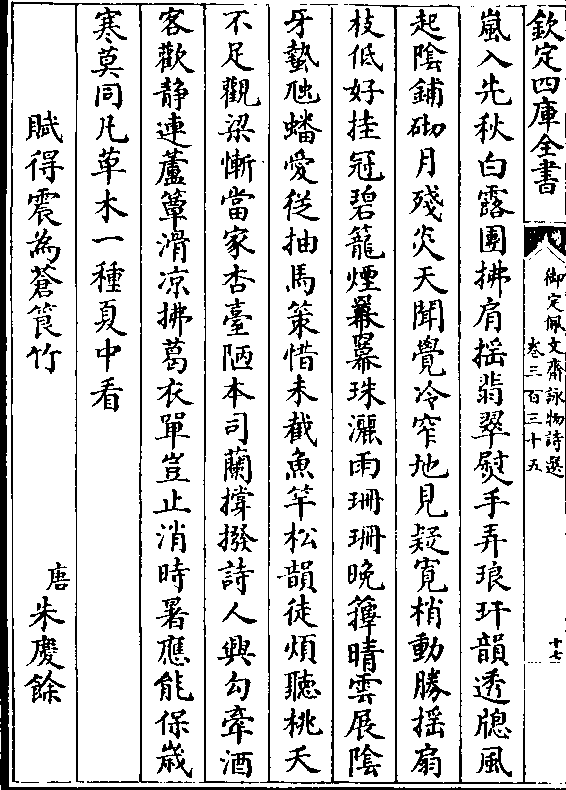 欽定四庫全書
御定佩文齋詠物詩選
卷三百三十五
十七
嵐入先秋白露團拂肩揺翡翠熨手弄琅玕韻透牕風
起陰鋪砌月殘炎天聞覺冷窄地見疑寛梢動勝揺扇
枝低好挂冠碧籠煙羃羃珠灑雨珊珊晩籜晴雲展陰
牙蟄虺蟠愛從抽馬策惜未截魚竿松韻徒煩聽桃夭
不足觀梁慚當家杏臺陋本司蘭撐撥詩人興勾牽酒
客歡静連蘆簟滑凉拂葛衣單豈止消時暑應能保歳
寒莫同凡草木一種夏中看
賦得震為蒼筤竹
唐
朱慶餘